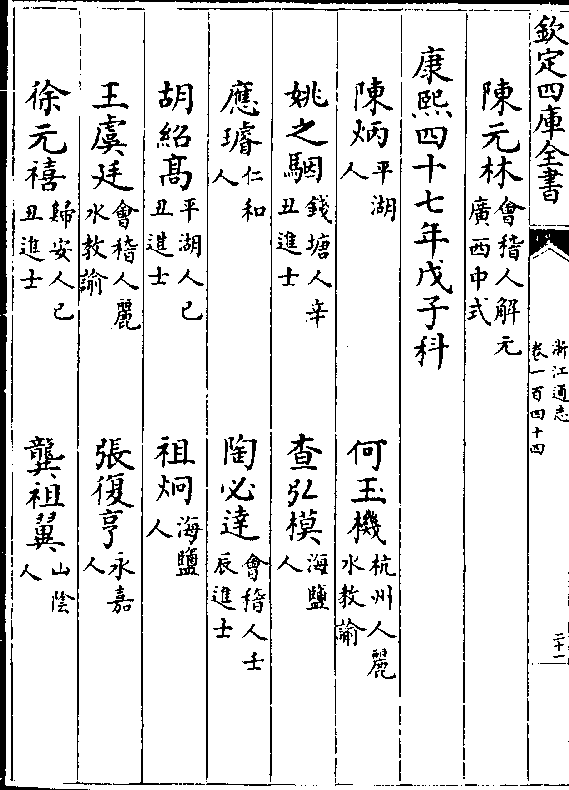 欽定四庫全書
浙江通志
卷一百四十四
二十一
陳元林會稽人解元廣西中式
康熙四十七年戊子科
陳炳平湖人
何玉機杭州人麗水教諭
姚之駰錢塘人辛丑進士
查弘模海鹽人
應璿仁和人
陶必達會稽人壬辰進士
胡紹髙平湖人己丑進士
祖炯海鹽人
王虞廷會稽人麗水教諭
張復亨永嘉人
徐元禧歸安人己丑進士
龔祖翼山陰人